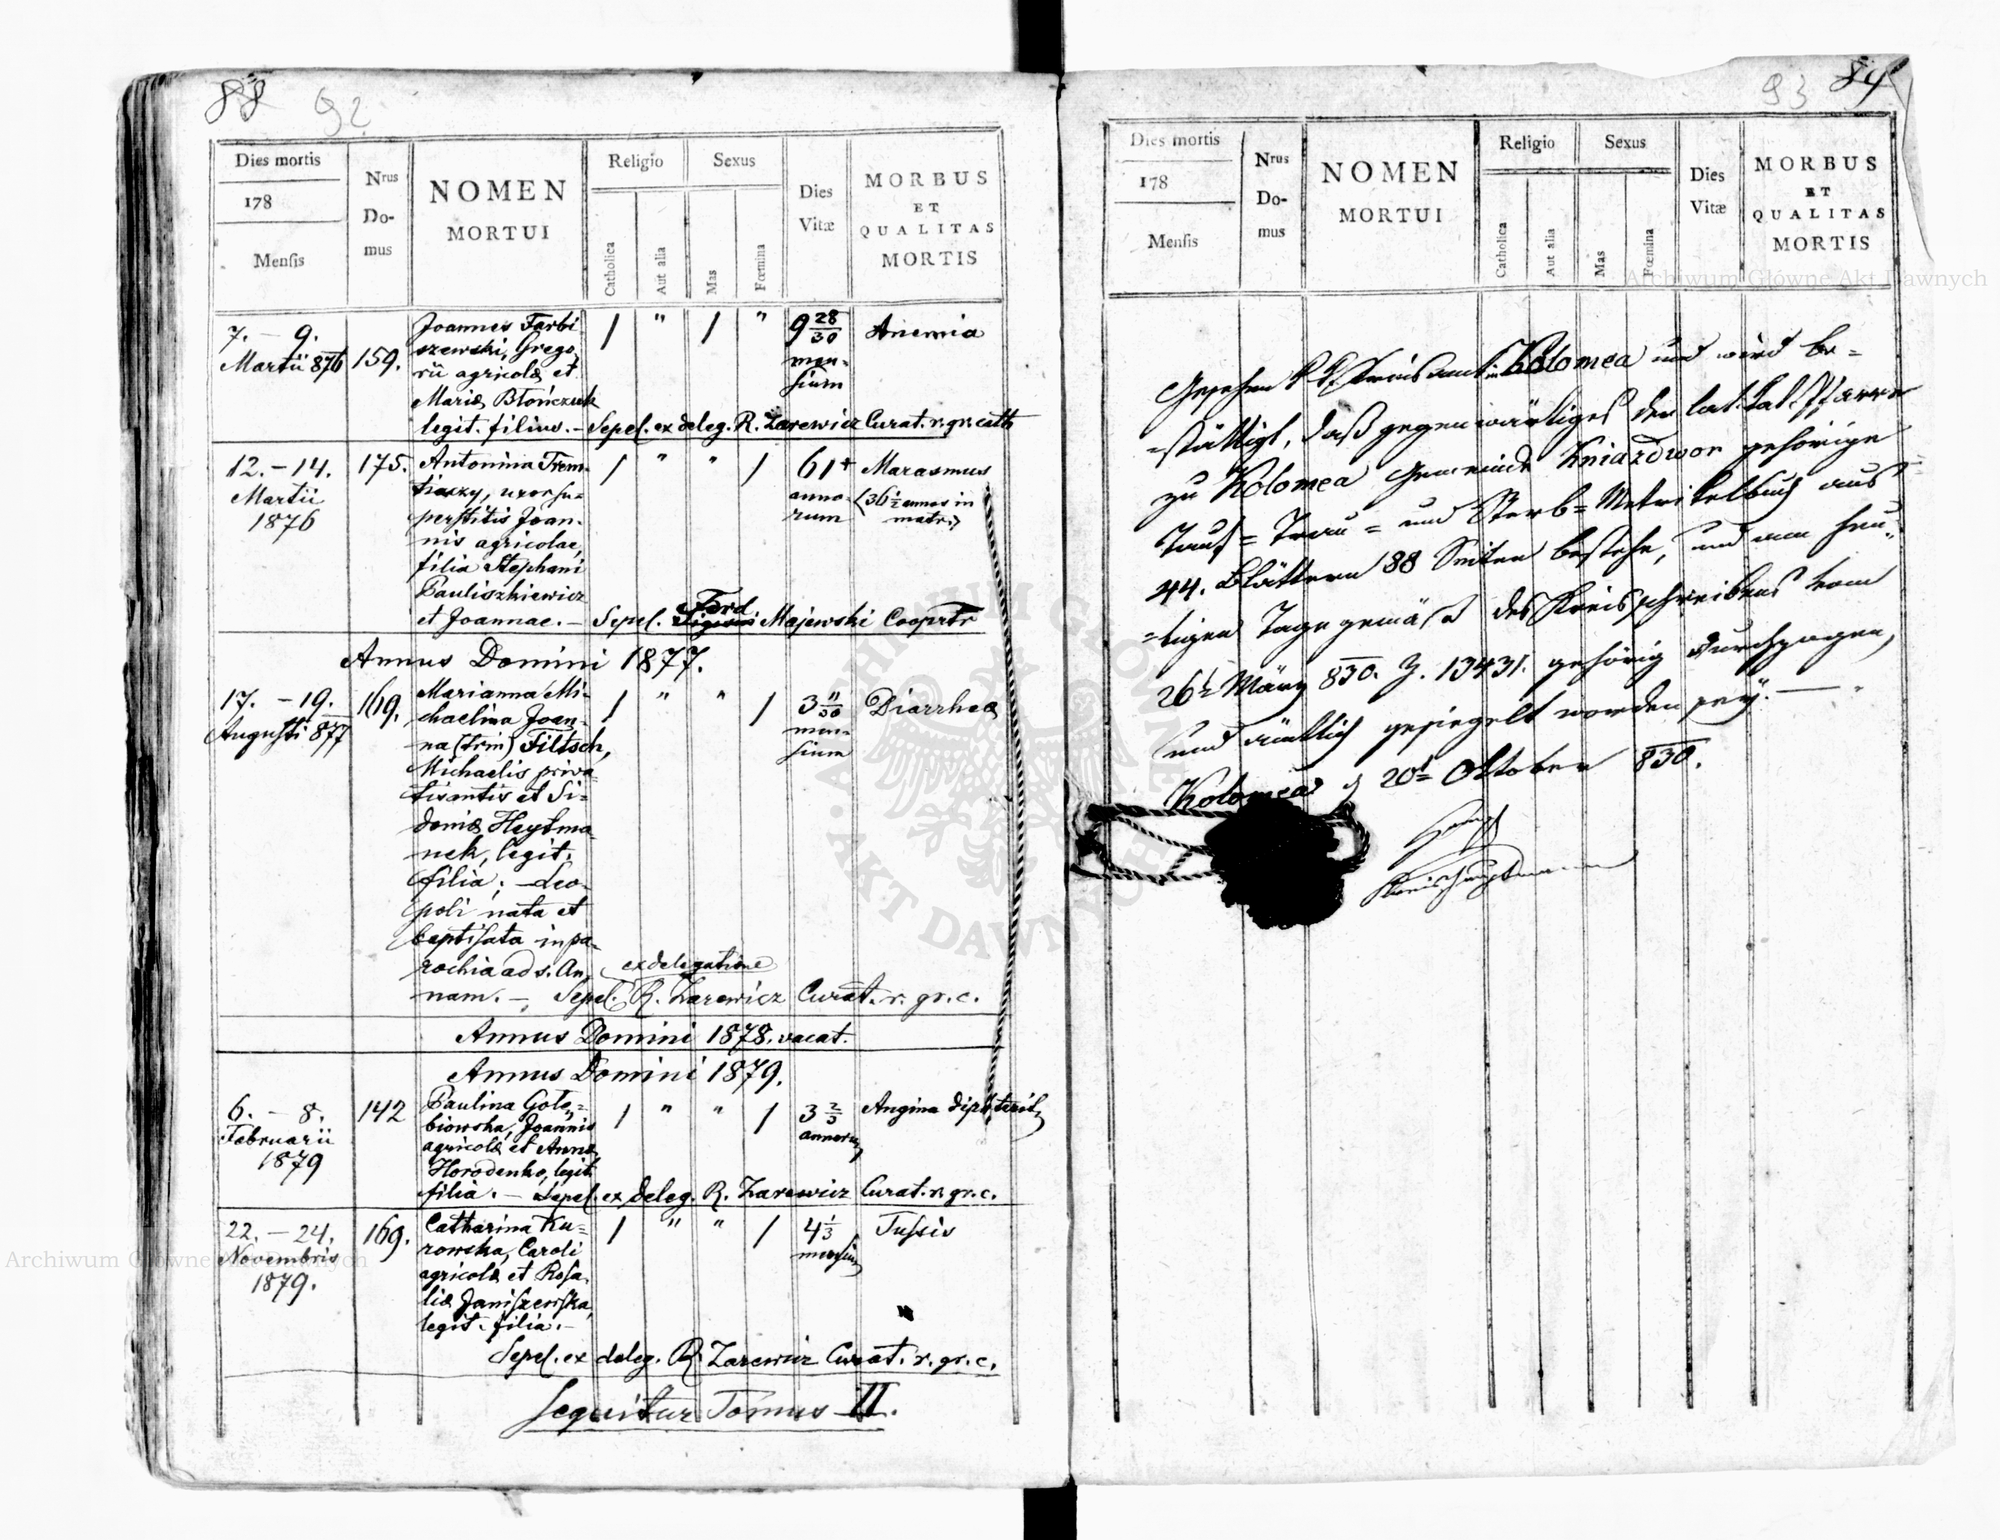 88 92
Dies mortis
178
Mensis
Nrus
Do-
mus
NOMEN
MORTUI
Religio
Catholica
Aut alia
Sexus
Mas
Fœmina
Dies
Vitæ
MORBUS
ET
QUALITAS
MORTIS
7. – 9.
Martii 876
159.
Joannes Farbi
szewski, Grego
rii agricolæ et
Mariæ Błończuk
legit. filius. – Sepel. ex deleg. R. Zarewicz Curat. r. gr. cath
/ " / "
9 28/30
men-
sium
Anemia
12. – 14.
Martii
1876
175.
Antonina Trem-
tiaczy, uxor su-
perstitis Joan-
nis agricolae,
filia Stephani
Pauliszkiewicz
et Joannae. – Sepel. Ferd. Majewski Cooprtr
/ " " /
61+
anno-
rum
Marasmus
(36 1/2 annos in
matr.)
Annus Domini 1877.
17. – 19.
Augusti 877
169.
Marianna Mi-
chaelina Joan-
na (trin) Filtsch,
Michaelis priva-
tisantis et Si-
doniæ Heytma-
nek, legit.
filia; – Leo-
poli nata et
baptisata in pa-
rochia ad s. An-
nam. – Sepel. ex delegatione R. Zarewicz Curat. r. gr. c.
/ " " /
3 11/30
men-
sium
Diarrhea
Annus Domini 1878. vacat.
Annus Domini 1879.
6. – 8.
Februarii
1879
142
Paulina Goło-
biowska, Joannis
agricolæ et Annæ
Horodenko, legit.
filia. – Sepel. ex deleg. R. Zarewicz Curat. r. gr. c.
/ " " /
3 2/3
annorum
Angina diphterit.
22. – 24.
Novembris
1879.
169.
Catharina Ku-
rowska, Caroli
agricolæ et Rosa-
liæ Janiszewska,
legit. filia. –
Sepel. ex deleg. R. Zarewicz Curat. r. gr. c.
/ " " /
4 1/3
mensium
Tussis
Sequitur Tomus II.
93 89
Dies mortis
178
Mensis
Nrus
Do-
mus
NOMEN
MORTUI
Religio
Catholica
Aut alia
Sexus
Mas
Fœmina
Dies
Vitæ
MORBUS
ET
QUALITAS
MORTIS
Gesehen k k Kreisamt in Kolomea und wird be=
=stättigt, daß gegenwärtiges der lat. kat. Pfarre
zu Kolomea Gemeinde Kniazdwor gehörige
Tauf= Trau= und Sterb= Metrikelbuch aus
44. Blättern 88 Seiten bestehe, und am heu=
=tigen Tage gemäß des Kreisschreibens vom
26t März 830. Z. 13431. gehörig durchzogen,
und ämtlich gesiegelt worden sey. –
Kolomea d 20t Oktober 830.
Kreishauptmann
Archiwum Główne Akt Dawnych
Archiwum Główne Akt Dawnych
ARCHIWUM GŁÓWNE
AKT DAWNYCH